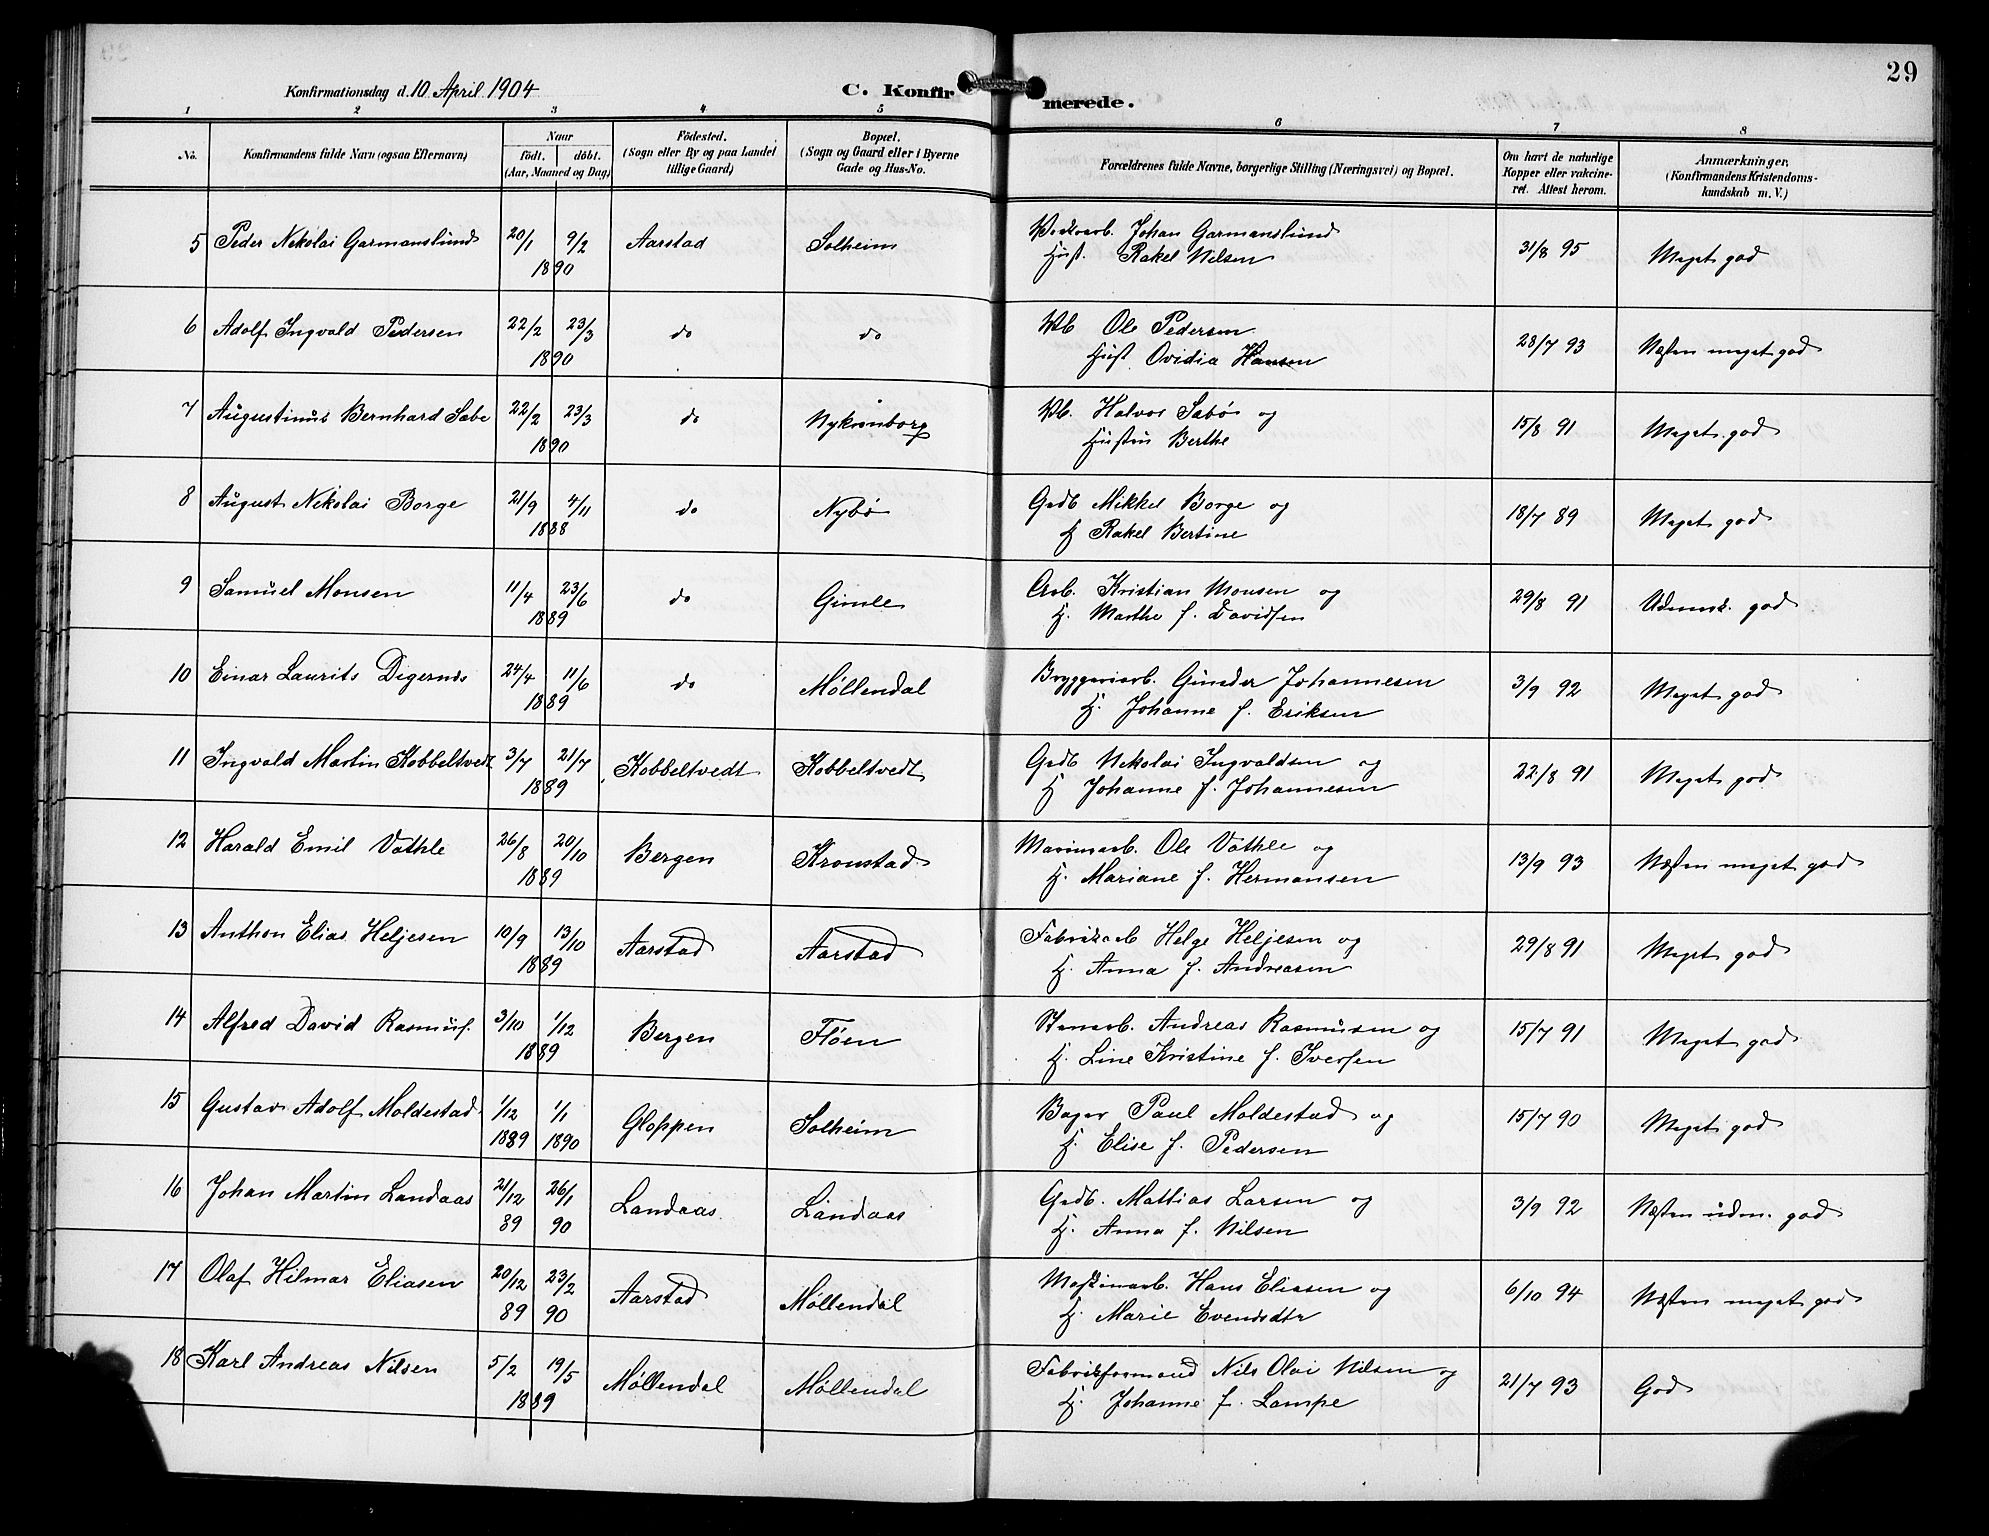 29
Konfirmationsdag d. 10 April 1904
C. Konfirmerede.
1 2 3 4 5 6 7 8
No.
Konfirmandens fulde Navn (ogsaa Efternavn)
Naar
födt. döbt.
(Aar, Maaned og Dag)
Födested.
(Sogn eller By og paa Landet
tillige Gaard)
Bopæl.
(Sogn og Gaard eller i Byerne
Gade og Hus-No.
Forældrenes fulde Navne, borgerlige Stilling (Næringsvei) og Bopæl.
Om havt de naturlige
Kopper eller vakcine-
ret. Attest herom.
Anmærkninger.
(Konfirmandens Kristendoms-
kundskab m. V.)
5 Peder Nikolai Garmanslund 20/1 9/2 Aarstad Solheim Johan Garmanslund 31/8 95 Meget god
1890 Hust. Rakel Nilsen
6 Adolf Ingvald Pedersen 22/2 23/3 do do Vb Ole Pedersen 28/7 93 Næsten meget god
1890 Hust Ovidia Hansen
7 Augustinus Bernhard Sabø 22/2 23/3 do Nykronborg Vb. Halvor Sabø og 15/8 91 Meget god
1890 Hustru Berthe
8 August Nikolai Borge 21/9 4/11 do Nybø Grdb Mikkel Borge og 18/7 89 Meget god
1888 H Rakel Bertine
9 Samuel Monsen 11/4 23/6 do Gimle Arb. Kristian Monsen og 29/8 91 Udmrk. god
1889 H. Marthe f. Davidsen
10 Einar Laurits Digernes 24/4 11/6 do Møllendal Bryggeriarb. Gunder Johannesen 3/9 92 Meget god
1889 H. Johanne f. Eriksen
11 Ingvald Martin Kobbeltvedt 3/7 21/7 Kobbeltvedt Kobbeltvedt Grdb Nikolai Ingvaldsen og 22/8 91 Meget god
1889 H Johanne f. Johannesen
12 Harald Emil Vathle 26/8 20/10 Bergen Kronstad Marinearb. Ole Vathle og 13/9 93 Næsten meget god
1889 H. Mariane f. Hermansen
13 Anthon Elias Heljesen 10/9 13/10 Aarstad Aarstad Fabrikarb Helge Heljesen og 29/8 91 Meget god
1889 H. Anna f. Andreasen
14 Alfred David Rasmus. 3/10 1/12 Bergen Fløen Stenarb. Andreas Rasmusen og 15/7 91 Meget god
1889 H. Line Kristine f. Iversen
15 Gustav Adolf Moldestad 1/12 1/1 Gloppen Solheim Bager Paul Moldestad og 15/7 90 Meget god
1889 1890 H. Elise f. Pedersen
16 Johan Martin Landaas 21/12 26/1 Landaas Landaas Grdb. Mattias Larsen og 3/9 92 Næsten udm. god
89 90 H. Anna f. Nilsen
17 Olaf Hilmar Eliasen 20/12 23/2 Aarstad Møllendal Maskinarb. Hans Eliasen og 6/10 94 Næsten meget god
89 90 H. Marie Evensdtr
18 Karl Andreas Nilsen 5/2 19/5 Møllendal Møllendal Fabrikformand Nils Olai Nilsen og 21/7 93 God
1889 H. Johanne f. Lampe